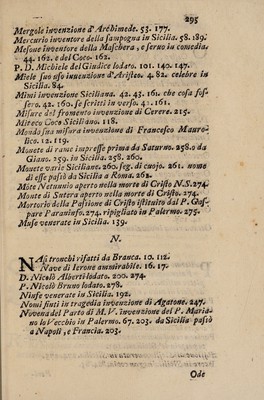 295
Mergole invenzione d'Archimede. 53. 177.
Mercurio inventore della sampogna in Sicilia. 58. 189.
Mesone inventore della Maschera, e servo in comedia,
44. 162. e del Coco. 162.
P. D. Michiele del Giudice lodato. 101. 140. 147.
Miele suo uso innenzione d'Aristeo. 4. 82. celebre in
Sicilia. 84.
Mimi invenzione Siciliana. 42. 43. 161. che cosa fos-
sero. 42. 160. se scritti in verso. 161.
Misure del fromento invenzione di Cerere. 215.
Miteco Coco Siciliano. 118.
Mondo sua misura invenzione di Francesco Mauro-
lico. 12. 119.
Monete di rame impresse prima da Saturno. 258. o da
Giano. 259. in Sicilia. 258. 260.
Monete varie Siciliane. 260. seg. di cuojo. 261. nome
di esse passò da Sicilia a Roma. 262.
Mote Netunnio aperto nella morte di Cristo N.S. 274.
Monte di Sutera aperto nella morte di Cristo. 274.
Mortorio della Passione di Cristo istituito dal P. Gas-
pare Paraninfo. 274. ripigliato in Palermo. 275.
Muse venerate in Sicilia. 139.
N.
NAsi tronchi rifatti da Branca. 10. 112.
Nave di Ierone ammirabile. 16. 17.
D. Nicolò Alberti lodato. 200. 274.
P. Nicolò Bruno lodato. 278.
Ninfe venerate in Sicilia. 192.
Nomi finti in tragedia invenzione di Agatone. 247.
Novena del Parto di M. V. invenzione del P. Maria-
no lo Vecchio in Palermo. 67. 203. da Sicilia passò
a Napoli, e Francia. 203.
Ode